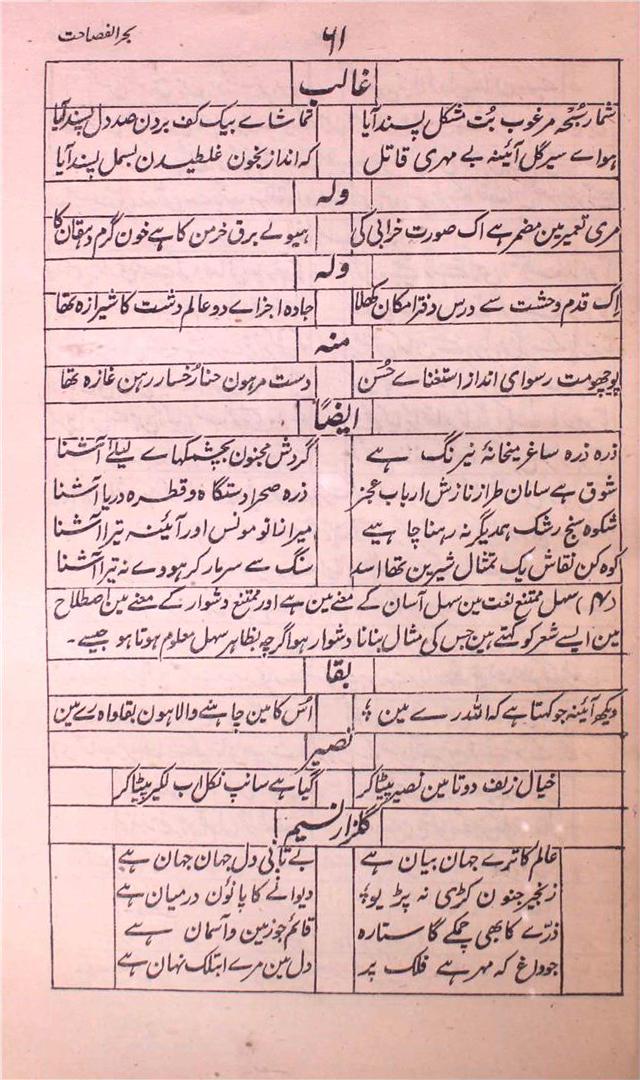 بحر الفصاحت
۶۱
غالب
شمار سُبحہ مرغوب بُت مشکل پسند آیا تماشاے بیک کف بردن صد دل پسند آیا
ہواے سیر گل آئینہ بے مہری قاتل کہ انداز بخون غلطیدن بسمل پسند آیا
ولہ
مری تعمیر مین مضمر ہے اک صورت خرابی کی ہیولے برق خرمن کا ہے خون گرم دہقان کا
ولہ
اِک قدم وحشت سے درس دفتر امکان کھُلا جادہ اجزاے دو عالم دشت کا شیرازہ تھا
منہ
پوچھو مت رسوای انداز استغناے حُسن دست مرہون حنا رُخسار رہن غازہ تھا
ایضاً
ذرہ ذرہ ساغر میخانۂ نیرنگ ہے گردش مجنون بچشمکہاے لیلےٰ آشنا
شوق ہے سامان طراز نازش ارباب عجز ذرہ صحرا دستگاہ و قطرہ دریا آشنا
شکوہ سنج رشک ہمدیگر نہ رہنا چاہیے میرا زانو مونس اور آئینہ تیرا آشنا
کوہ کن نقاش یک تمثال شیرین تھا اسد سنگ سے سر مار کر ہووے نہ تیرا آشنا
(۴) سہل ممتنع لغت مین سہل آسان کے معنے مین ہے اور ممتنع دشوار کے معنے مین اصطلاح
مین ایسے شعر کو کہتے ہین جس کی مثال بنانا دشوار ہو اگرچہ بظاہر سہل معلوم ہوتا ہو جیسے۔
بقا
دیکھ آئینہ جو کہتا ہے کہ اللہ رے مین اُس کا مین چاہنے والا ہون بقا واہ رے مین
نصیر
خیال زلف دوتا مین نصیر پیٹا کر گیا ہے سانپ نکل اب لکیر پیٹا کر
گلزار نسیم
عالم کا ترے جہان بیان ہے بے تابئی دل جہان جہان ہے
زنجیر جنون کڑی نہ پڑیو دیوانے کا پانؤن درمیان ہے
ذرّے کا بھی چمکے گا ستارہ قائم جو زمین و آسمان ہے
جو داغ کہ مہر ہے فلک پر دل مین مرے ابتلک نہان ہے